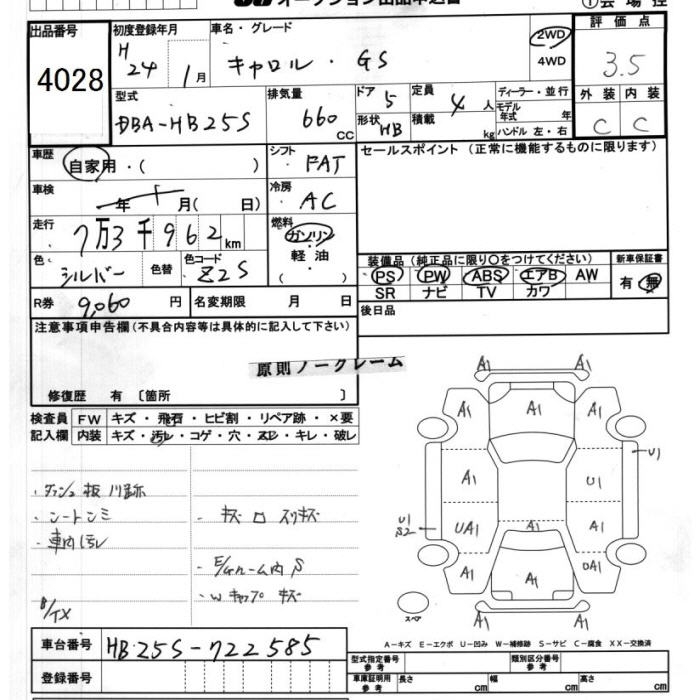 出品番号
4028
初度登録年月
H
24 1月
車名・グレード
キャロル ・ GS
2WD
4WD
評価点
3.5
外装 内装
C C
型式
DBA-HB25S
排気量
660
CC
ドア
5
形状 HB
定員
4 人
積載
kg
ディーラー・並行
モデル
年式 年
ハンドル 左・右
車歴
自家用・( )
シフト
FAT
セールスポイント (正常に機能するものに限ります)
車検
年 月( 日)
冷房
AC
走行
7万3千962km
燃料
ガソリン
軽油
( )
色
シルバー
色替
色コード
Z2S
装備品 (純正品に限り〇をつけてください)
PS PW ABS エアB AW
SR ナビ TV カワ
新車保証書
有 無
R券 9,060 円
名変期限 月 日
後日品
注意事項申告欄 (不具合内容等は具体的に記入して下さい)
原則ノークレーム
修復歴 有 〔箇所 〕
検査員
記入欄
FW キズ・飛石・ヒビ割・リペア跡・×要
内装 キズ・汚レ・コゲ・穴・スレ・キレ・破レ
・シートシミ
・車内汚レ
・E/gルーム内 S
・W キャップ キズ
A1 A1
A1 A1 A1
U1
A1 U1
U1
S2
UA1 A1 A1
A1 A1 UA1
A1 A1
スペア
A-キズ E-エクボ U-凹み W-補修跡 S-サビ C-腐食 XX-交換済
車台番号
HB25S-722585
登録番号
型式指定番号
参考
類別区分番号
参考
車庫証明用
参考
長さ cm
幅 cm
高さ cm